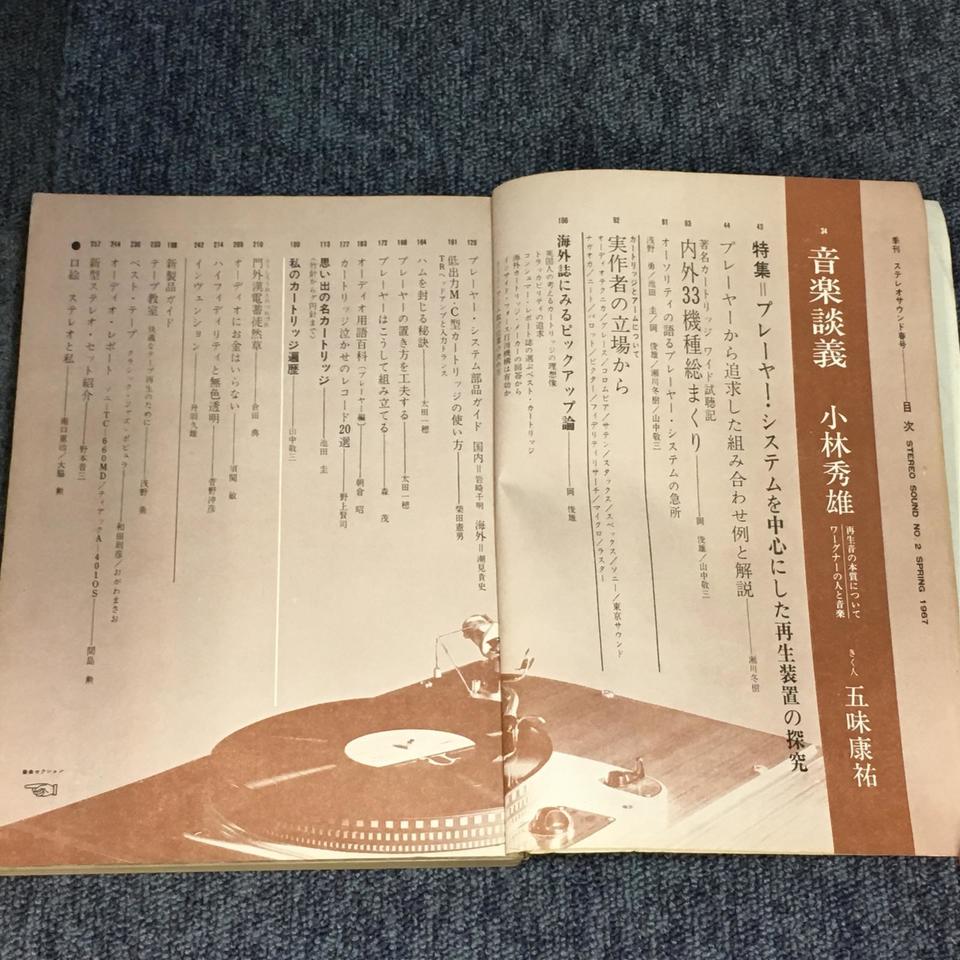 季刊 ステレオサウンド春号
目次 STEREO SOUND NO. 2 SPRING 1967
34 音楽談義 小林秀雄
再生音の本質について
ワーグナーの人と音楽
きく人 五味康祐
43 特集＝プレーヤー・システムを中心にした再生装置の探究
44 プレーヤーから追求した組み合わせ例と解説 瀬川冬樹
著名カートリッジ ワイド試聴記
63 内外33機種総まくり 岡 俊雄/山中敬三
81 オーソリティの語るプレーヤー・システムの急所
浅野 勇/池田 圭/岡 俊雄/瀬川冬樹/山中敬三
カートリッジとアームについて
92 実作者の立場から
オーディオテクニカ/グレース/コロムビア/サテン/スタックス/スペックス/ソニー/東京サウンド
ナガオカ/ニート/パロット/ビクター/フィデリティリサーチ/マイクロ/ラスター
106 海外誌にみるピックアップ論 岡 俊雄
英国人の考えるカートリッジの理想像
トラッカビリティの追求
コンシュマー・レポート誌の選ぶベスト・カートリッジ
海外カートリッジ・メーカーの回答から
プレーヤー・システム部品ガイド 国内＝岩崎千明 海外＝潮見貴史
161 低出力M・C型カートリッジの使い方 柴田憲男
TRヘッドアンプと入力トランス
164 ハムを封じる秘訣 太田一穂
166 プレーヤーの置き方を工夫する 太田一穂
172 プレーヤーはこうして組み立てる 森 茂
183 オーディオ用語百科（プレーヤー編） 朝倉 昭
122 カートリッジ泣かせのレコード20選 野上賢司
113 思い出の名カートリッジ 池田 圭
（竹針からダ円針まで）
100 私のカートリッジ遍歴 山中敬三
210 門外漢電蓄徒然草 倉田 典
205 オーディオにお金はいらない 須関 敏
214 ハイフィディリティと無色透明 菅野沖彦
242 インヴェンション 丹羽久雄
188 新製品ガイド
233 テープ教室 快適なテープ再生のために 浅野 勇
236 ベスト・テープ クラシック・ジャズ・ポピュラー 和田則彦/おがわまさお
244 オーディオ・レポート ソニーTC-660MD/ティアックA-4010S 間島 勲
257 新型ステレオ・セット紹介 野本晋三
● 口絵 ステレオと私 南口重治/大脇 勲
音楽セクション